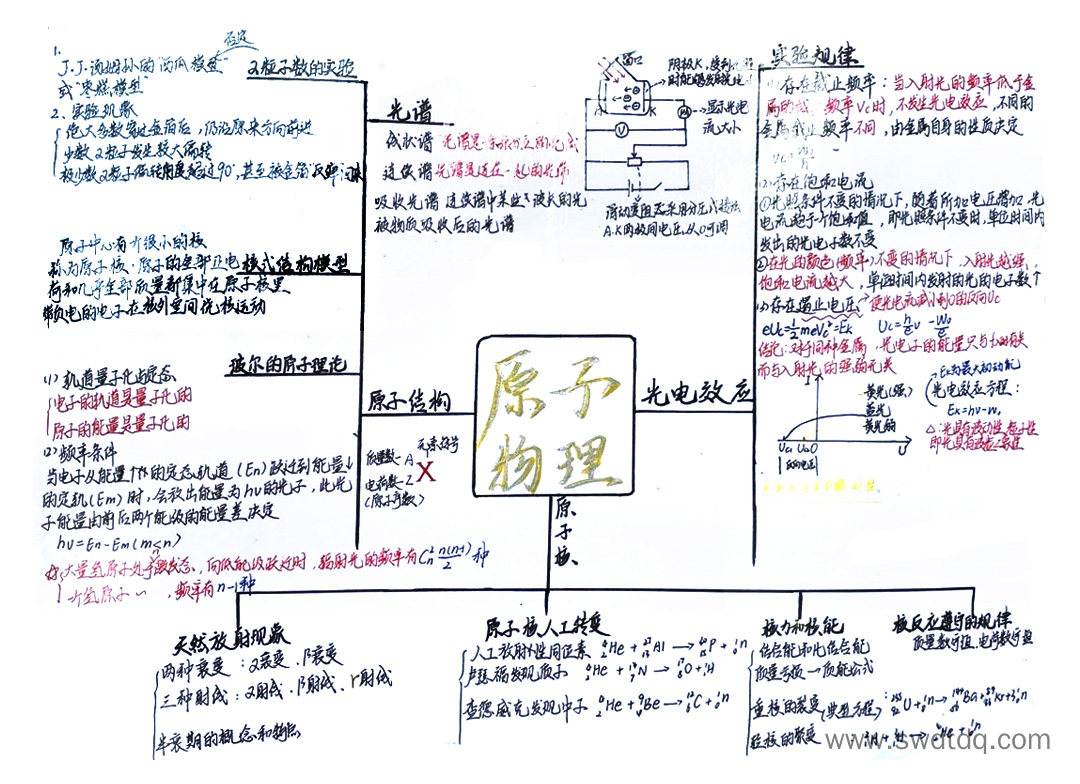 原子
物理
原子结构
α粒子数的实验
否定
1.
J.J.汤姆孙的"西瓜模型"
或"枣糕模型"
2.实验现象
绝大多数穿过金箔后，仍沿原来方向前进
少数α粒子发生较大偏转
极少数α粒子偏转角度超过90°，甚至被金箔
核式结构模型
原子中心有个很小的核
称为原子核．原子的全部正电
荷和几乎全部质量都集中在原子核里
带负电的电子在核外空间绕核运动
玻尔的原子理论
(1) 轨道量子化与定态
电子的轨道是量子化的
原子的能量是量子化的
(2) 频率条件
的定轨(Em)时，会放出能量为hν的光子，此光
子能量由前后两个能级的能量差决定
hν=En-Em(m<n)
大量氢原子处于激发态，向低能级跃迁时，辐射光的频率有C²n n(n-1)/2 种
一个氢原子 ，频率有n-1种
光谱
线状谱 光谱是一条条分立的亮线
连续谱 光谱是连在一起的光带
吸收光谱 连续谱中某些波长的光
被物质吸收后的光谱
质量数-A 元素符号
X
电荷数-Z
(原子序数)
光电效应
窗口
阴极K，
A
K
V
显示光电
流大小
滑动变阻器采用分压式接法
A.K两极间电压从0可调
实验规律
(1)存在截止频率：当入射光的频率低于金
属的截止频率νc时，不发生光电效应，不同的
金属截止频率不同，由金属自身的性质决定
(2)存在饱和电流
①光照条件不变的情况下，随着所加电压增加，光
电流趋于一个饱和值，即光照条件不变时，单位时间内
发出的光电子数不变
②在光的颜色(频率)不变的情况下，入射光越强，
饱和电流越大，单位时间内发射的光电子数↑
(3)存在遏止电压：使光电流减小到0的反向Uc
eUc=½meVc²=Ek Uc=h/e ν - W₀/e
结论：对于同种金属，光电子的能量只与ν有关
而与入射光的强弱无关
Ek为最大初动能
光电效应方程：
Ek=hν-W₀
I
黄光(强)
蓝光
黄光弱
Uc1 Uc2 O
U
原子核
天然放射现象
两种衰变：α衰变．β衰变
三种射线：α射线．β射线．γ射线
半衰期的概念和特点
原子核人工转变
人工放射性同位素 ⁴₂He+²⁷₁₃Al→³⁰₁₅P+¹₀n
卢瑟福发现质子 ⁴₂He+¹⁴₇N→¹⁷₈O+¹₁H
查德威克发现中子 ⁴₂He+⁹₄Be→¹²₆C+¹₀n
核力和核能
结合能和比结合能
质量亏损—质能公式
重核的裂变(典型方程)：
轻核的聚变
核反应遵守的规律
质量数守恒、电荷数守恒
www.swdtdq.com